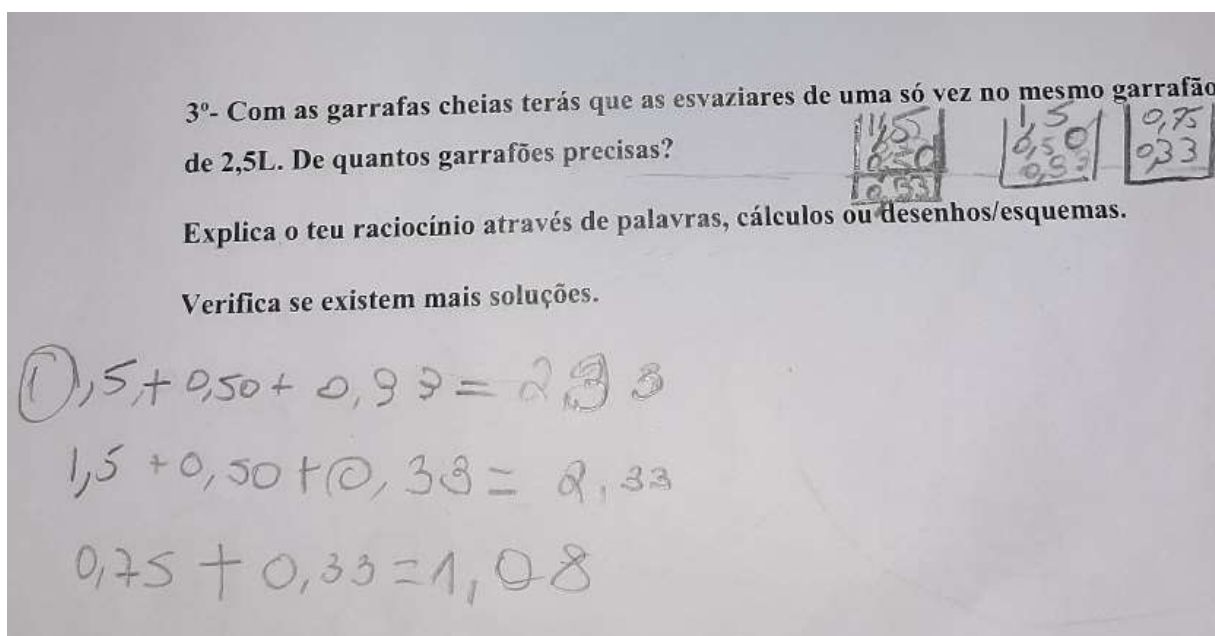 3º- Com as garrafas cheias terás que as esvaziares de uma só vez no mesmo garrafão
de 2,5L. De quantos garrafões precisas?
1,5
0,50
0,33
1,5
0,50
0,33
0,75
0,33
Explica o teu raciocínio através de palavras, cálculos ou desenhos/esquemas.
Verifica se existem mais soluções.
1,5+0,50+0,33=2,33
1,5+0,50+0,33=2,33
0,75+0,33=1,08